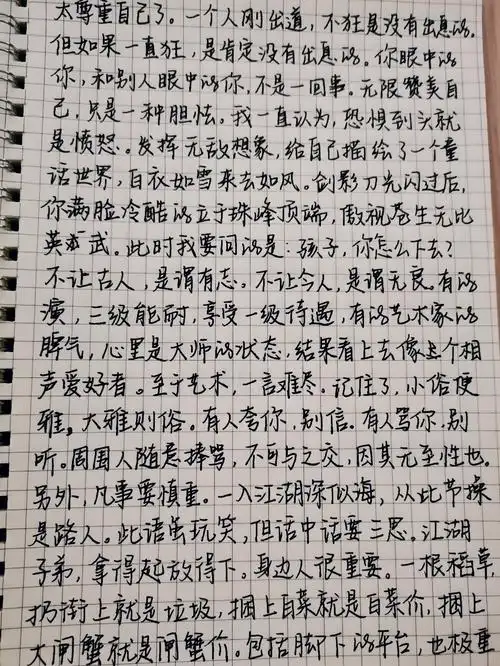 太尊重自己了。一个人刚出道，不狂是没有出息的。
但如果一直狂，是肯定没有出息的。你眼中的
你，和别人眼中的你，不是一回事。无限赞美自
己，只是一种胆怯。我一直认为，恐惧到头就
是愤怒。发挥无敌想象，给自己描绘了一个童
话世界，白衣如雪来去如风。剑影刀光闪过后，
你满脸冷酷的立于珠峰顶端，傲视苍生无比
英武。此时我要问的是：孩子，你怎么下去？
不让古人，是谓有志。不让今人，是谓无良。有的
演，三级能耐，享受一级待遇，有的艺术家的
脾气，心里是大师的状态，结果看上去像个相
声爱好者。至于艺术，一言难尽。记住了，小俗便
雅。大雅则俗。有人夸你，别信。有人骂你，别
听。周围人随意捧骂，不可与之交，因其无至性也。
另外，凡事要慎重。一入江湖深似海，从此节操
是路人。此语虽玩笑，但话中话要三思。江湖
子弟，拿得起放得下。身边人很重要。一根稻草，
扔街上就是垃圾，捆上白菜就是白菜价，捆上
大闸蟹就是闸蟹价。包括脚下的平台，也极重